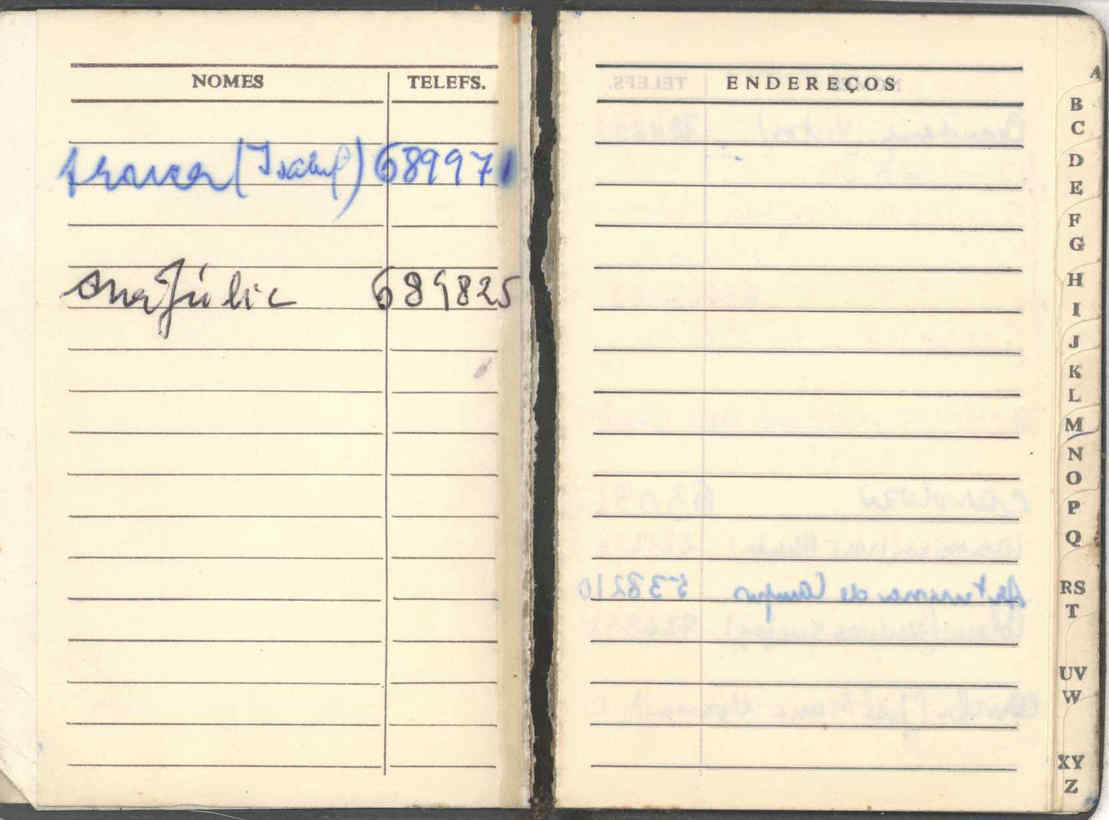 NOMES TELEFS.
(Isabel) 689971
Ana Júlia 689825
ENDEREÇOS
A
B
C
D
E
F
G
H
I
J
K
L
M
N
O
P
Q
RS
T
UV
W
XY
Z